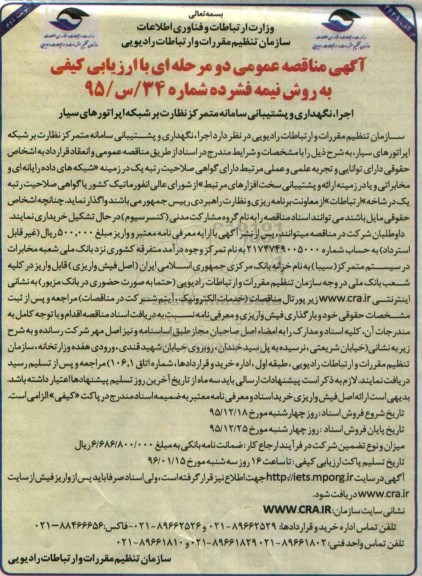 بسمه تعالی
وزارت ارتباطات و فناوری اطلاعات
سازمان تنظیم مقررات و ارتباطات رادیویی
آگهی مناقصه عمومی دو مرحله ای با ارزیابی کیفی
به روش نیمه فشرده شماره ۳۴/س/۹۵
اجرا، نگهداری و پشتیبانی سامانه متمرکز نظارت بر شبکه اپراتورهای سیار
سازمان تنظیم مقررات و ارتباطات رادیویی در نظر دارد اجرا، نگهداری و پشتیبانی سامانه متمرکز نظارت بر شبکه
اپراتورهای سیار، به شرح ذیل را با مشخصات و شرایط مندرج در اسناد از طریق مناقصه عمومی و انعقاد قرارداد به اشخاص
حقوقی دارای توانایی و تجربه علمی و عملی مرتبط دارای گواهی صلاحیت رتبه یک در زمینه «شبکه های داده رایانه ای و
مخابراتی و یا در زمینه ارائه و پشتیبانی سخت افزارهای مرتبط» از شورای عالی انفورماتیک کشور یا گواهی صلاحیت رتبه
یک در شاخه «ارتباطات» از معاونت برنامه ریزی و نظارت راهبردی رییس جمهور می باشند واگذار نماید. چنانچه اشخاص
حقوقی مایل باشند می توانند اسناد مناقصه را به نام گروه مشارکت مدنی (کنسرسیوم) در حال تشکیل خریداری نمایند.
داوطلبان شرکت در مناقصه میتوانند، پس از نشر آگهی با ارایه معرفی نامه معتبر و واریز مبلغ ۵۰۰,۰۰۰ ریال (غیر قابل
استرداد) به حساب شماره ۲۱۷۴۷۴۹۰۰۵۰۰۰ به نام تمرکز وجوه درآمد متفرقه کشوری نزد بانک ملی شعبه مخابرات
در سیستم متمرکز (سیبا) به نام خزانه بانک مرکزی جمهوری اسلامی ایران (اصل فیش واریزی) قابل واریز در کلیه
شعب بانک ملی در وجه سازمان تنظیم مقررات و ارتباطات رادیویی (حتما به صورت حضوری در بانک مزبور) به نشانی
اینترنتی www.cra.ir زیر پورتال مناقصات (خدمات الکترونیک، آیتم شرکت در مناقصات) مراجعه و پس از ثبت
مشخصات حقوقی خود و بارگذاری فیش واریزی و معرفی نامه نسبت به دریافت اسناد مناقصه اقدام و با توجه کامل به
مندرجات آن، کلیه اسناد و مدارک را به امضاء اصل صاحبان مجاز طبق اساسنامه و نیز اصل مهر شرکت رسانده و به شرح
زیر به نشانی (خیابان شریعتی، نرسیده به پل سید خندان، روبروی خیابان شهید قندی، ورودی هفده وزارتخانه، سازمان
تنظیم مقررات و ارتباطات رادیویی، طبقه اول، اداره خرید و قراردادها، شماره اتاق ۱۰۶,۱) مراجعه و پس از تسلیم رسید
دریافت نمایند. لازم به ذکر است پیشنهادات ارسالی باید سه ماه از تاریخ آخرین روز تسلیم پیشنهادها اعتبار داشته باشد.
بدیهی است ارائه اصل فیش واریزی خرید اسناد و معرفی نامه معتبر به ضمیمه اسناد مندرج در پاکت «کیفی» الزامی است.
تاریخ شروع فروش اسناد: روز چهارشنبه مورخ ۹۵/۱۲/۱۸
تاریخ پایان فروش اسناد: روز چهارشنبه مورخ ۹۵/۱۲/۲۵
میزان و نوع تضمین شرکت در فرآیند ارجاع کار: ضمانت نامه بانکی به مبلغ ۶/۶۸۶/۸۰۰/۰۰۰ ریال
تاریخ تسلیم پاکت ارزیابی کیفی: تا ساعت ۱۶ روز سه شنبه مورخ ۹۶/۰۱/۱۵
آگهی در سایت http://iets.mporg.ir جهت اطلاع نیز قرار گرفته است، ولی اسناد صرفا باید پس از واریز فیش از سایت
www.cra.ir دریافت شود.
نشانی سایت سازمان: WWW.CRA.IR
تلفن تماس اداره خرید و قراردادها: ۸۹۶۶۲۵۲۹-۰۲۱ و ۸۹۶۶۲۵۲۶-۰۲۱ - فاکس: ۸۸۴۶۶۶۵۶-۰۲۱
تلفن تماس واحد فنی: ۸۹۶۶۱۸۰۲-۰۲۱، ۸۹۶۶۱۸۲۹-۰۲۱ و ۸۹۶۶۱۸۱۰-۰۲۱
سازمان تنظیم مقررات و ارتباطات رادیویی